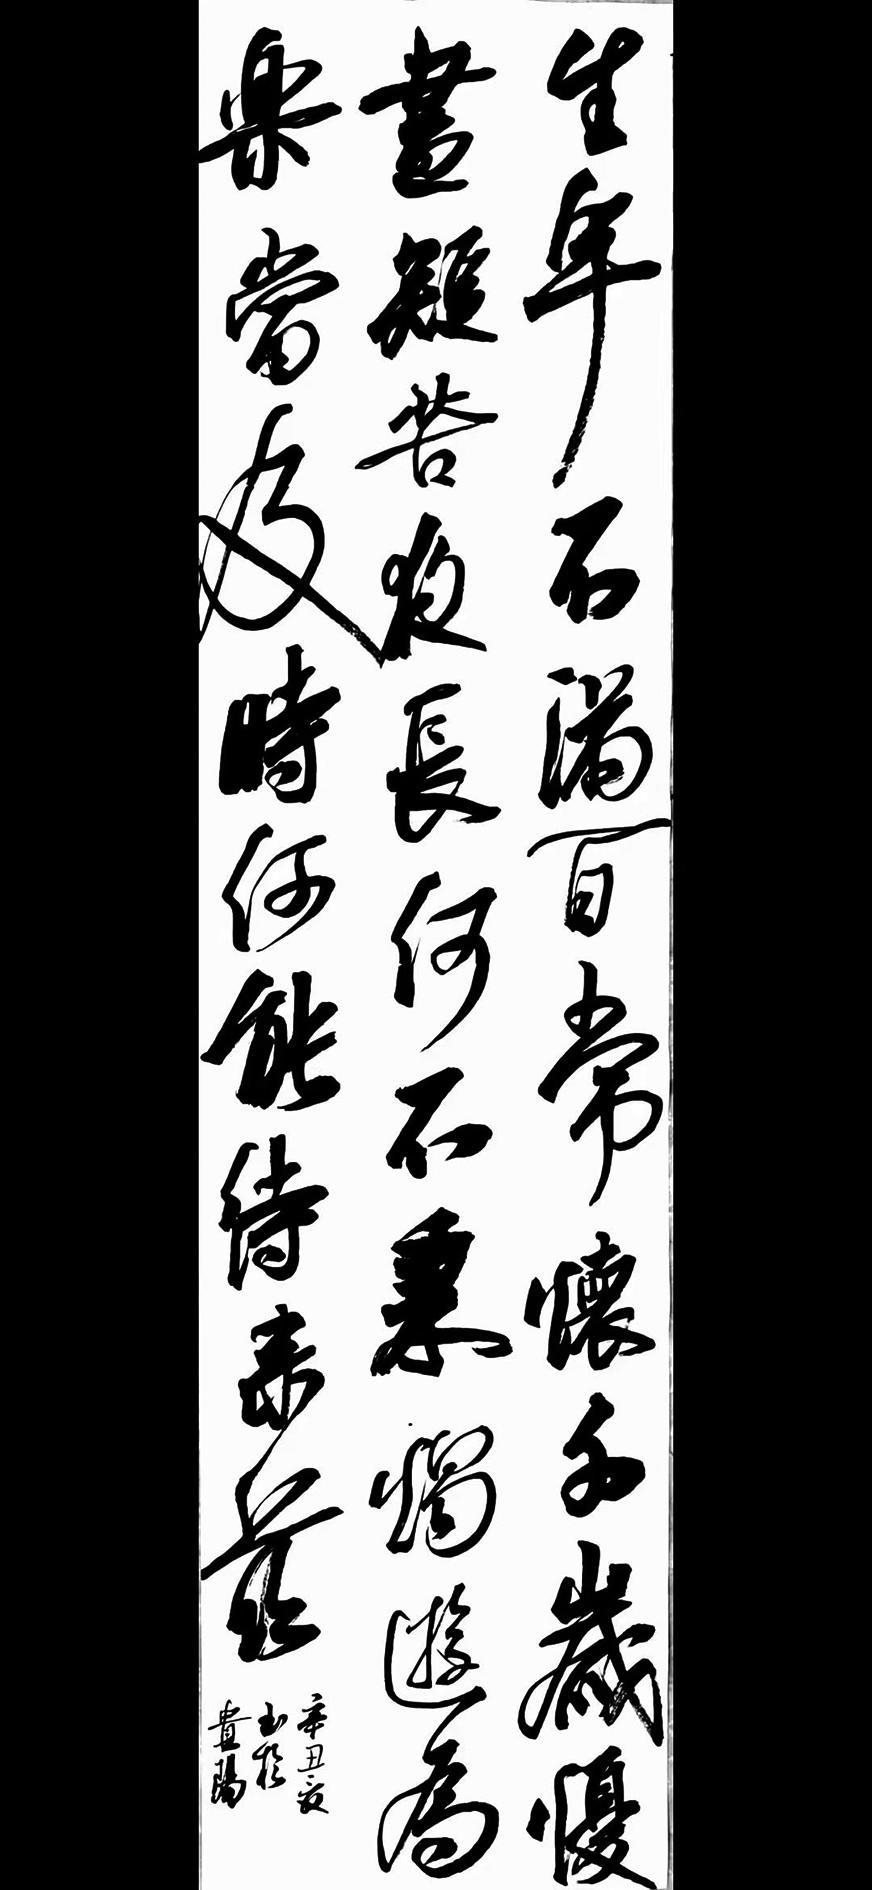 生年不滿百常懷千歲懮
晝短苦夜長何不秉燭遊為
楽當及時何能待来茲
辛丑夏
書於
貴陽